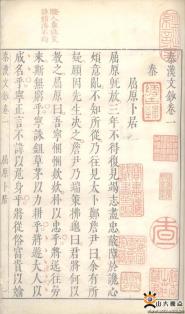 秦漢文鈔卷一
秦
屈原卜居
屈原既放三年不得復見竭志盡忠蔽障於讒心
煩意亂不知所從乃往見太卜鄭詹尹曰余有所
疑願因先生決之詹尹乃端策拂龜曰君將何以
教之屈原曰吾寧悃悃款款朴以忠乎將送往勞
來斯無窮乎寧誅鋤草茅以力耕乎將遊大人以
成名乎寧正言不諱以危身乎將從俗富貴以媮
秦漢文鈔卷一 屈原卜居